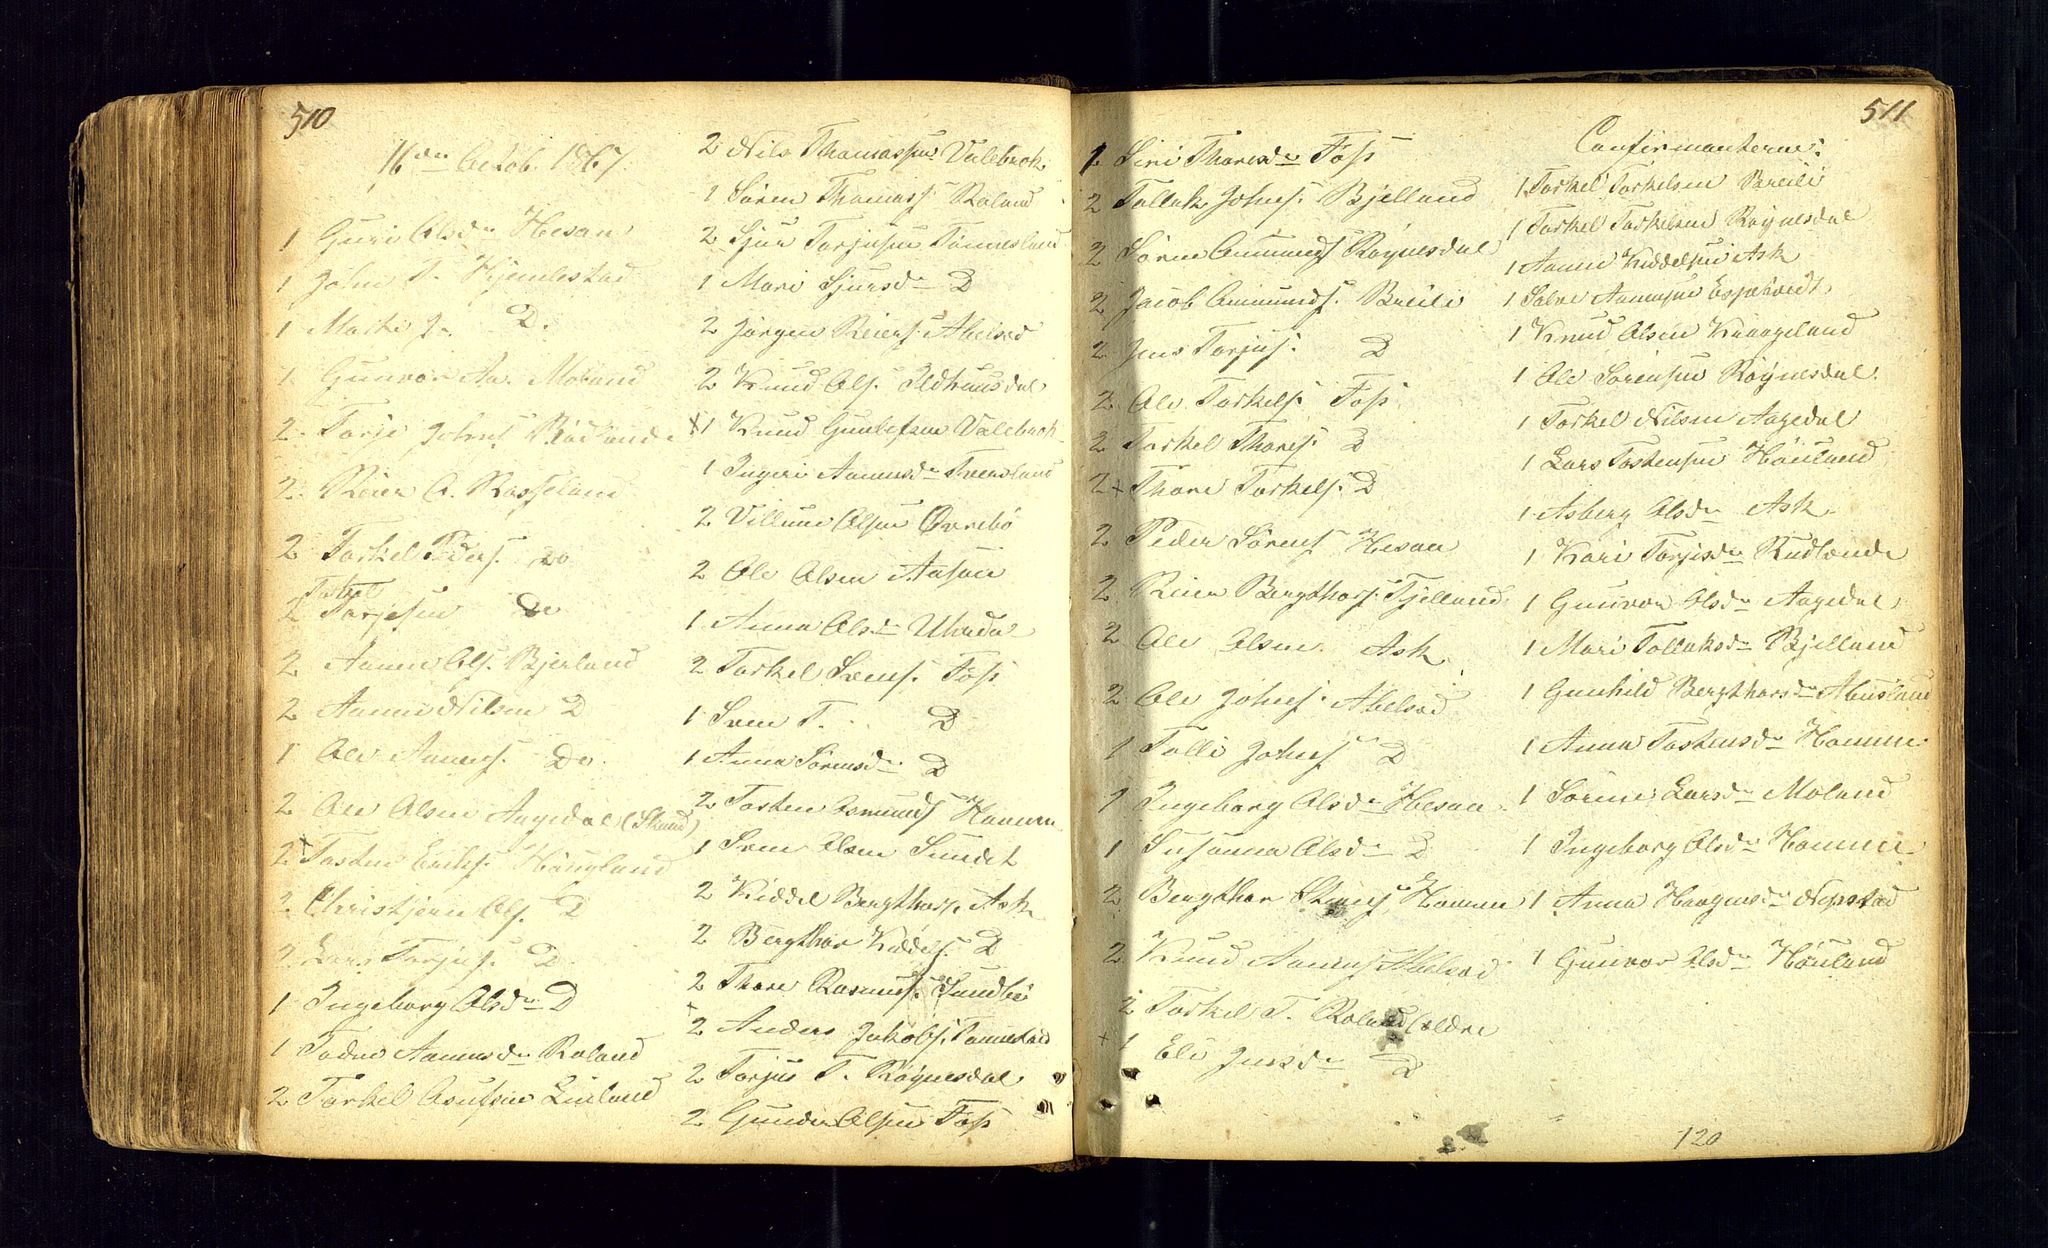 510
16 den Octob. 1867.
1 Guri Olsdr Hesaa
1 John T. Hjemlestad
1 J. D.
1 Gunvor Aa. Moland
2 Tarje Johns
2 Reier O. Rosseland
2 Torkel Peders. do
2 Tarjesen Do
2 Aanen Ols. Bjerland
2 Aanen Nilsen D
1 Ole Aanens. Do.
2 Ole Olsen Aagedal
2 Tosten Eriks. Hougland
2 Christjern Ols. D
2 Lars Tarjus. D.
1 Ingeborg Olsdr D
1 Todne Aanensdr Roland
2 Torkel Asulsen Lieland
2 Nils Thomassen Valebrok
1 Søren Thomass. Roland
2 Sjur Tarjusen Tønnesland
1 Mari Sjursdr D
2 Jørgen Reiers. Abelsed
2 Knud Ols. Ildhuusdal
+1 Knud Guntlefsen Valebrok
1 Ingeri Aanensdr Tveresland
2 Villum Olsen Øvrebø
2 Ole Olsen Aasen
1 Anna Olsdr
2 Torkel Svens. Foss
1 Sven T. D
1 Anna Sørensdr D
2 Tosten Osmunds Hommen
1 Sven Olsen Sundet
2 Kiddel Bergthors. Ask
2 Bergthor Kiddels. D
2 Thore Rasmuss. Sundbø
2 Anders Jakobs. Tonnestad
2 Tarjus T. Røynesdal
2 Gunder Olsen Foss
511
1 Siri Thoresdr Foss
2 Tollak Johns. Bjelland
2 Søren Omunds Røynesdal
2 Jacob Omunds. Breili
2 Jens Tarjus. D
2 Ole Torkels. Foss
2 Torkel Thores. D
2+ Thore Torkels. D
2 Peder Sørens Hesaa
2 Reier Bergthors. Fjelland
2 Ole Olsen Ask
2 Ole Johns. Abelsed
1 Tolli Johns D
1 Ingeborg Olsdr Hesaa
1 Susanna Olsdr D
2 Bergthor Hommen
2 Knud Aanens Abelsed
2 Torkel T. Roland (ældre
+1 Eli Jensdr D
Confirmanterne:
1 Torkel Torkelsen Breili
1 Torkel Torkelsen Røynesdal
1 Aanen Kiddelsen Ask
1 Salve Aanensen Espetvedt
1 Knud Olsen Kraageland
1 Ole Sørensen Røynesdal
1 Torkel Nilsen Aagedal
1 Lars Tostensen Høuland
1 Asberg Olsdr Ask
1 Kari Tarjesdr Rudlende
1 Gunvor Olsdr Aagedal
1 Mari Tollaksdr Bjelland
1 Gunhild Bergthorsdr Abusland
1 Anna Tostensdr Hommen
1 Sørine Larsdr Moland
1 Ingeborg Olsdr Hommen
1 Anna Haagensdr Nepstad
1 Gunvor Olsdr Høuland
120